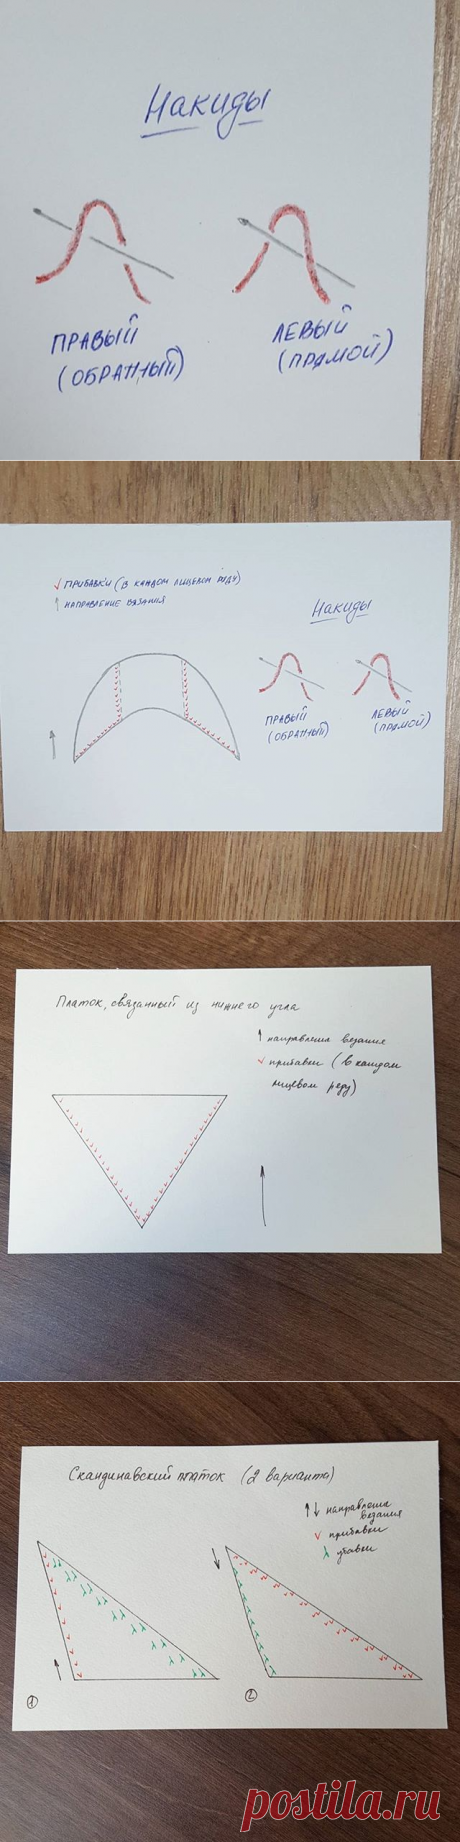 Накиды
ПРАВЫЙ
(ОБРАТНЫЙ)
ЛЕВЫЙ
(ПРЯМОЙ)
ПРИБАВКИ (В КАЖДОМ ЛИЦЕВОМ РЯДУ)
НАПРАВЛЕНИЕ ВЯЗАНИЯ
Накиды
ПРАВЫЙ
(ОБРАТНЫЙ)
ЛЕВЫЙ
(ПРЯМОЙ)
Платок, связанный из нижнего угла
направление вязания
прибавки (в каждом
лицевом ряду)
Скандинавский платок (2 варианта)
направление
вязания
прибавки
убавки
1
2
postila.ru